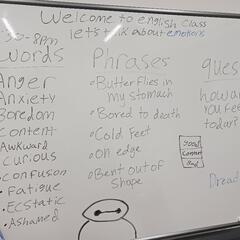 Welcome to english class
let's talk about emotions
30-8pm
words
Anger
Anxiety
Boredom
content
Awkward
curious
confusion
• Fatigue
• Ecstatic
• Ashamed
Phrases
• Butterflies in
my stomach
• Bored to death
• Cold feet
• on edge
• Bent out of
shape
ques
how ar
you fee
today?
good
content
Dread